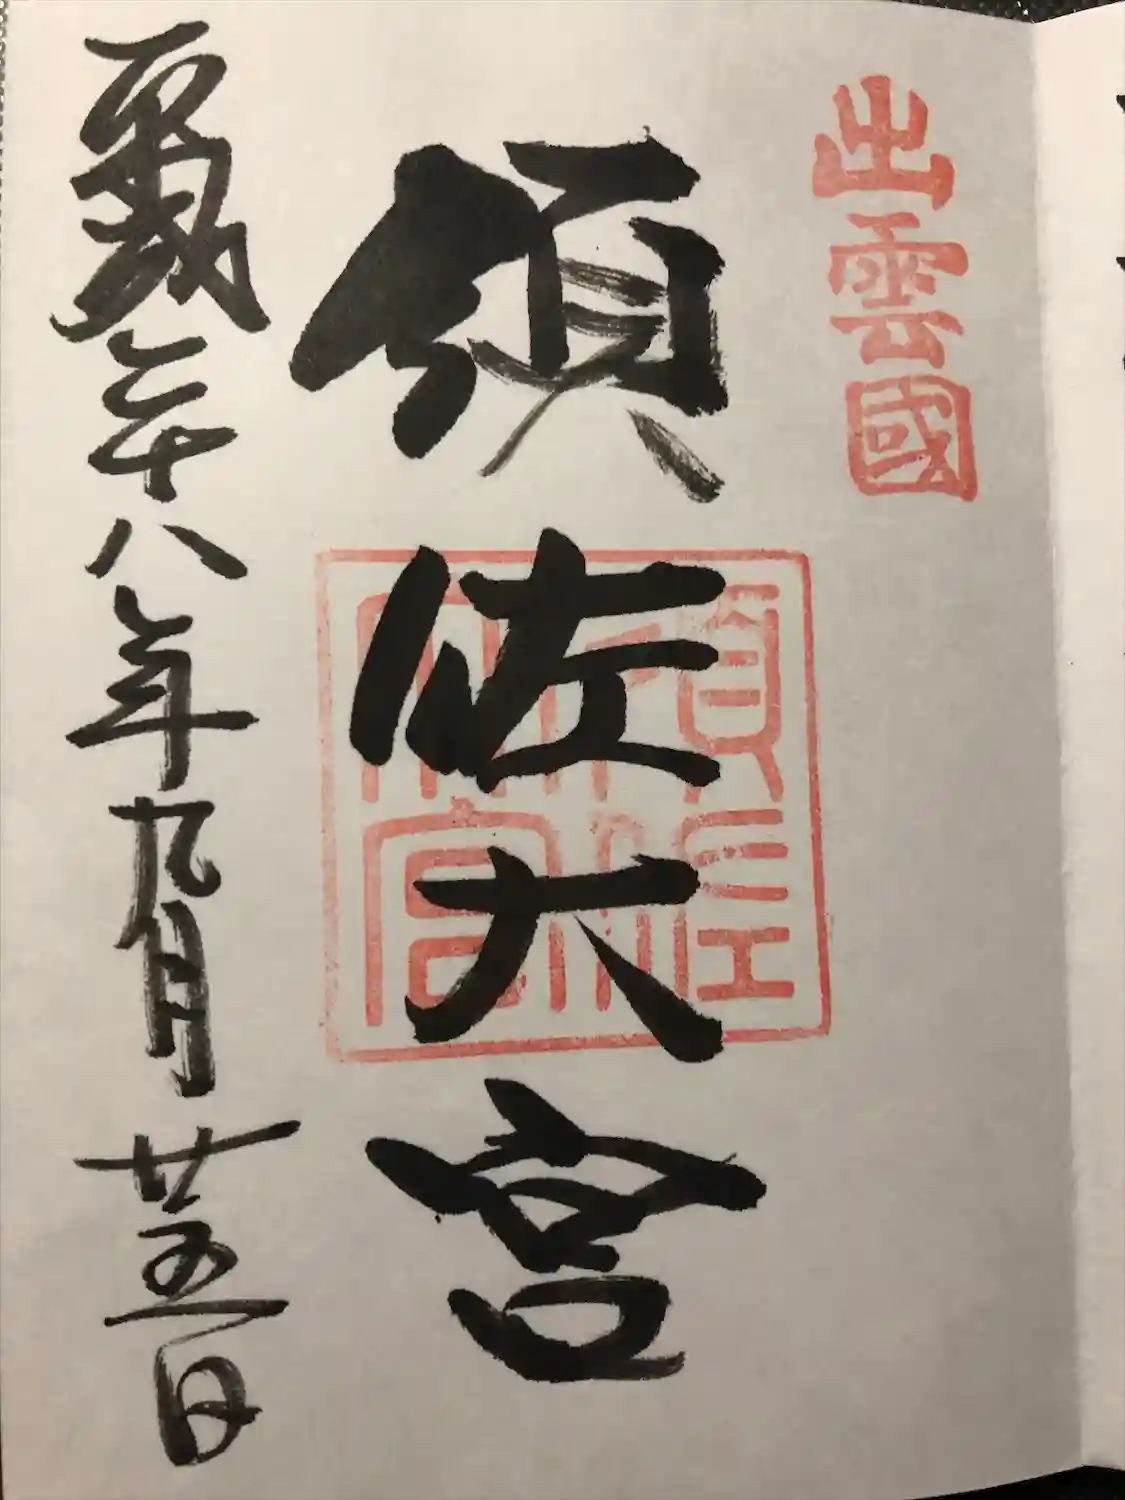 出雲國
須佐大宮
須佐
大宮
平成二十八年九月廿五日